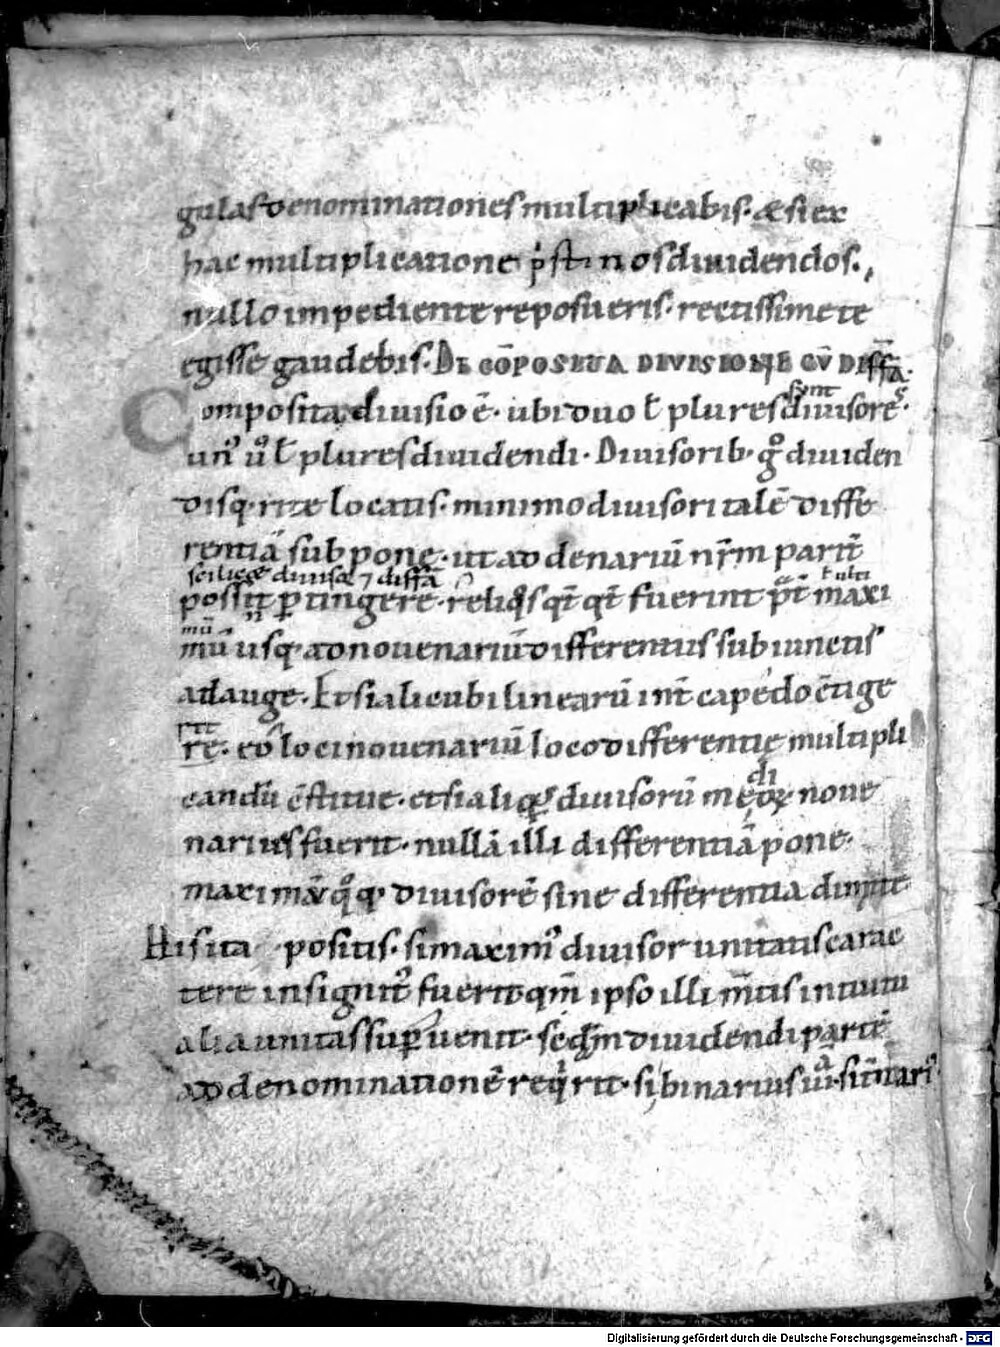 gulas denominationes multiplicabis. & si ex
hac multiplicatione p̱stinos diuidendos.,
nullo impediente reposueris. rectissime te
egisse gaudebis. DE CŌPOSITA DIVISIONE CŪ DIFFA.
Composita diuisio ē. ubi duo ł plures sunt diuisores.
un' u° ł plures diuidendi. Diuisorib. g° diuiden
disq. rite locatis. minimo diuisori talē diffe
rentiā subpone. ut ad denariū nr̄m parit̄
scilicet diuisor ⁊ diffa
possit ꝑtingere. reliqs qt̄ qt̄ fuerint p̄t maxi
ł ulti
mū
mū usq. ad nouenariū differentiis subiunctis
adauge. Et si alicubi linearū int̄capedo c̄tige
rit
re. eo loci nouenariū loco differentię multipli
candū c̄stitue. et si aliqꝰ diuisorū medioꝝ noue
narius fuerit. nullā illi differentiā pone.
maximū q°q. diuisorē sine differentia dimitte
His ita positis. si maxim' diuisor unitatis carac
tere insignit' fuerit qm̄ ipso illi m̄tis intuitu
alia unitas suꝑuenit. sec̄dm diuidendi partē
ad denominationē reqrit. si binarius iii. si t̄nari'
Digitalisierung gefördert durch die Deutsche Forschungsgemeinschaft - DFG